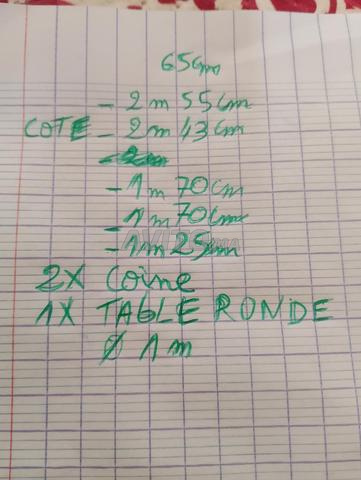 65cm
- 2m 55cm
COTE - 2m 43cm
- 1m 70cm
- 1m 70cm
- 1m 25cm
2X Coine
1X TABLE RONDE
Ø 1m